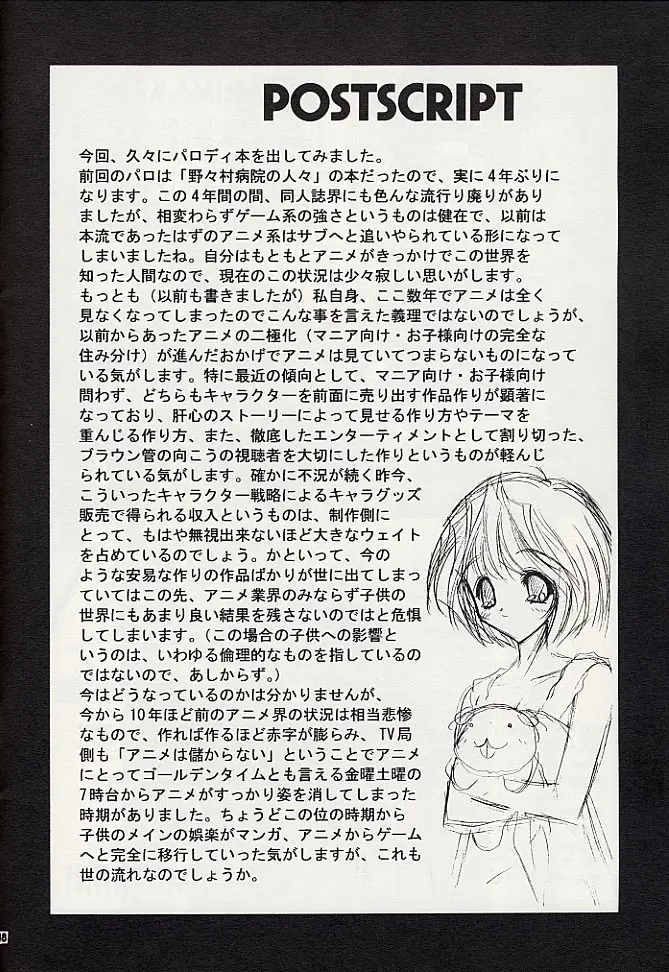 POSTSCRIPT
今回、久々にパロディ本を出してみました。
前回のパロは「野々村病院の人々」の本だったので、実に４年ぶりに
なります。この４年間の間、同人誌界にも色んな流行り廃りがあり
ましたが、相変わらずゲーム系の強さというものは健在で、以前は
本流であったはずのアニメ系はサブへと追いやられている形になって
しまいましたね。自分はもともとアニメがきっかけでこの世界を
知った人間なので、現在のこの状況は少々寂しい思いがします。
もっとも（以前も書きましたが）私自身、ここ数年でアニメは全く
見なくなってしまったのでこんな事を言えた義理ではないのでしょうが、
以前からあったアニメの二極化（マニア向け・お子様向けの完全な
住み分け）が進んだおかげでアニメは見ていてつまらないものになって
いる気がします。特に最近の傾向として、マニア向け・お子様向け
問わず、どちらもキャラクターを前面に売り出す作品作りが顕著に
なっており、肝心のストーリーによって見せる作り方やテーマを
重んじる作り方、また、徹底したエンターティメントとして割り切った、
ブラウン管の向こうの視聴者を大切にした作りというものが軽んじ
られている気がします。確かに不況が続く昨今、
こういったキャラクター戦略によるキャラグッズ
販売で得られる収入というものは、制作側に
とって、もはや無視出来ないほど大きなウェイト
を占めているのでしょう。かといって、今の
ような安易な作りの作品ばかりが世に出てしまっ
ていてはこの先、アニメ業界のみならず子供の
世界にもあまり良い結果を残さないのではと危惧
してしまいます。（この場合の子供への影響と
いうのは、いわゆる倫理的なものを指しているの
ではないので、あしからず。）
今はどうなっているのかは分かりませんが、
今から10年ほど前のアニメ界の状況は相当悲惨
なもので、作れば作るほど赤字が膨らみ、TV局
側も「アニメは儲からない」ということでアニメ
にとってゴールデンタイムとも言える金曜土曜の
７時台からアニメがすっかり姿を消してしまった
時期がありました。ちょうどこの位の時期から
子供のメインの娯楽がマンガ、アニメからゲーム
へと完全に移行していった気がしますが、これも
世の流れなのでしょうか。